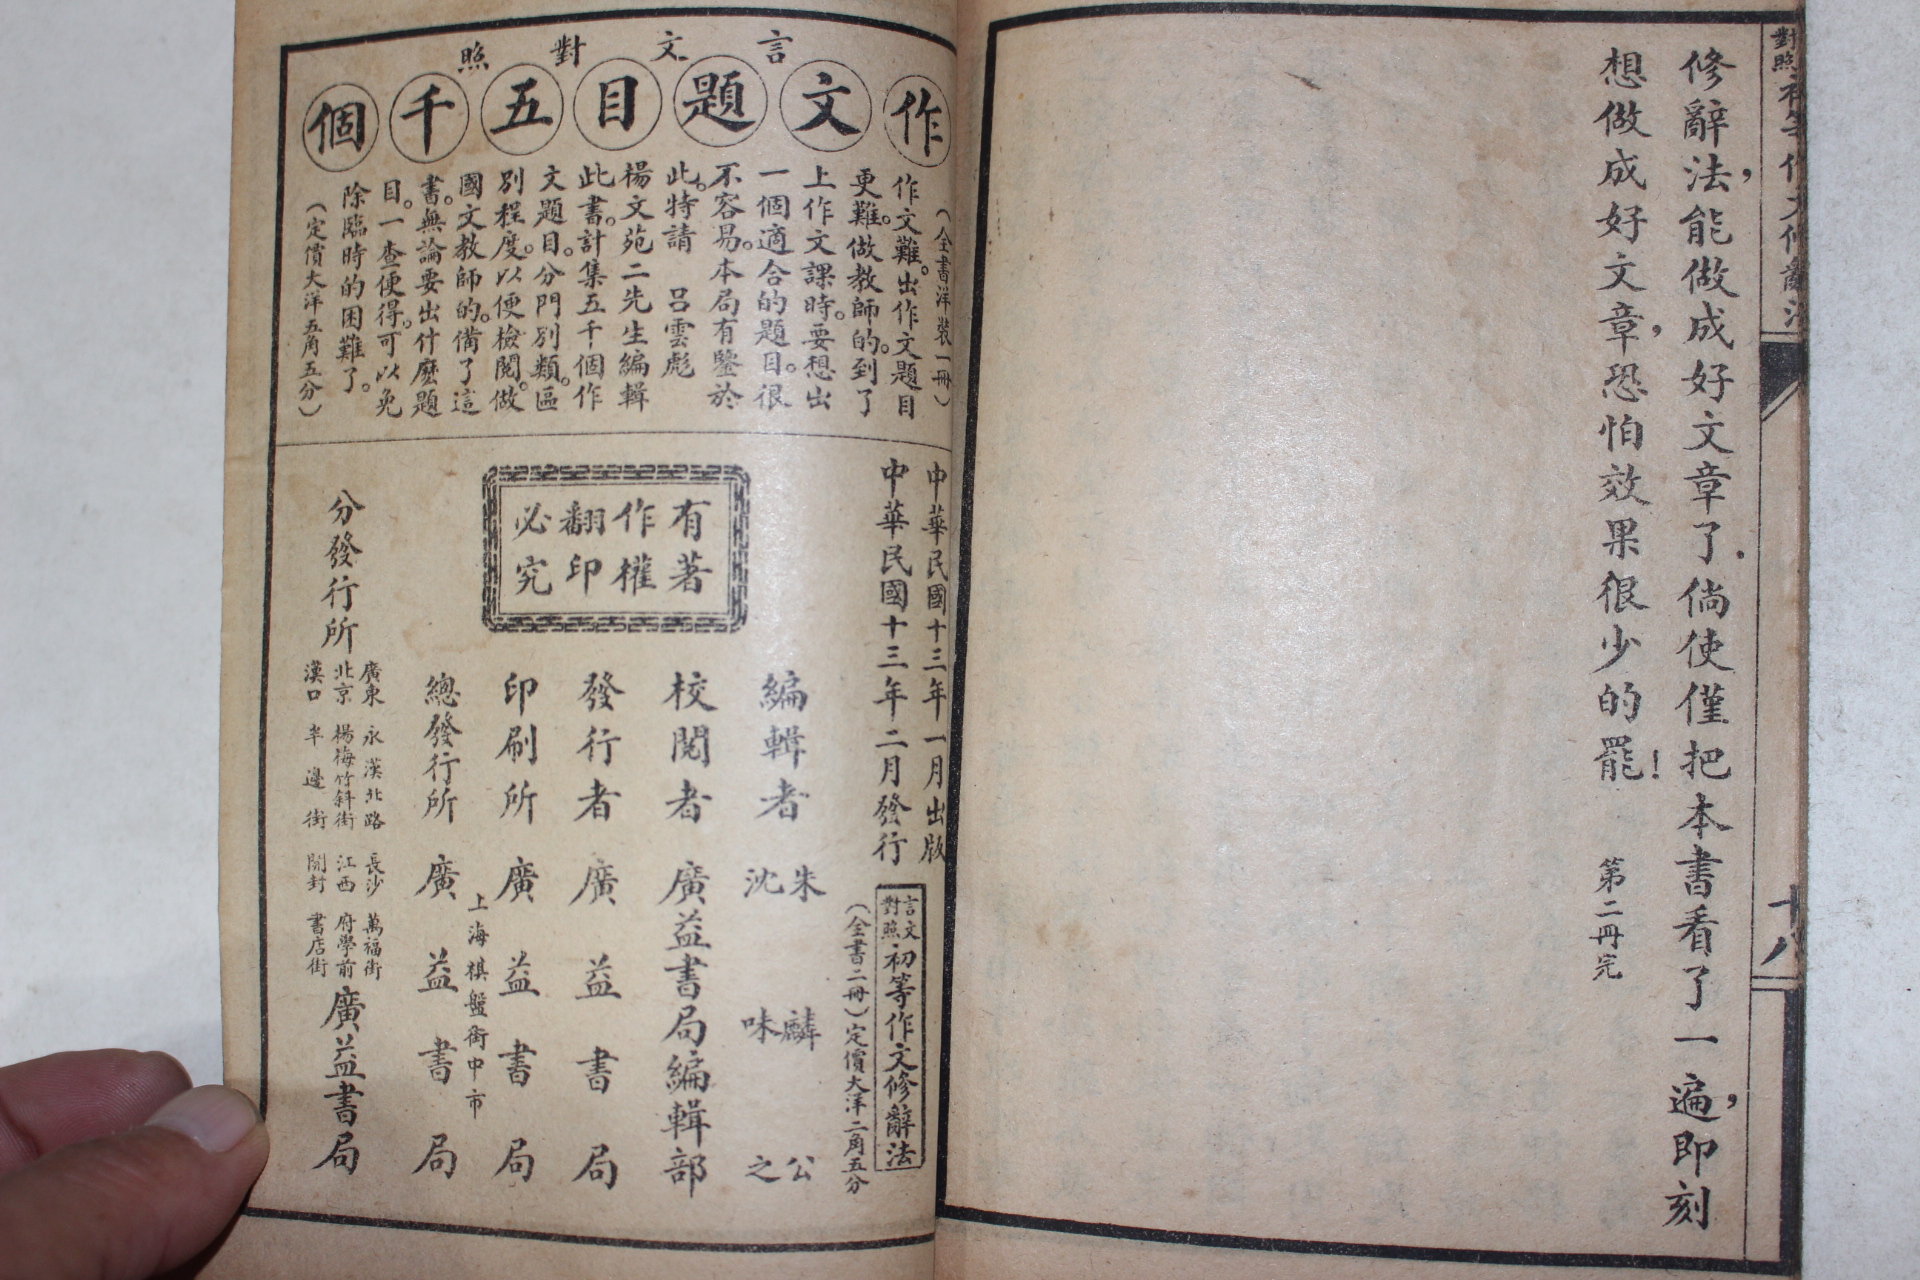 修辭法，能做成好文章了．倘使僅把本書看了一遍，即刻
想做成好文章，恐怕效果很少的罷！
第二冊完
十八
言文對照
作文題目五千個
（全書洋裝一冊）
作文難。出作文題目
更難。做教師的。到了
上作文課時。要想出
一個適合的題目。很
不容易。本局有鑒於
此。特請　呂雲彪
楊文苑二先生編輯
此書。計集五千個作
文題目。分門別類。區
別程度。以便檢閱。做
國文教師的。備了這
書。無論要出什麼題
目。一查便得。可以免
除臨時的困難了。
（定價大洋五角五分）
中華民國十三年一月出版
中華民國十三年二月發行
言文對照初等作文修辭法
（全書二冊）定價大洋二角五分
有著
作權
翻印
必究
編輯者　朱麟公
沈味之
校閱者　廣益書局編輯部
發行者　廣益書局
印刷所　廣益書局
上海棋盤街中市
總發行所　廣益書局
分發行所
廣東　永漢北路　長沙　萬福街
北京　楊梅竹斜街　江西　府學前
漢口　半邊街　開封　書店街
廣益書局